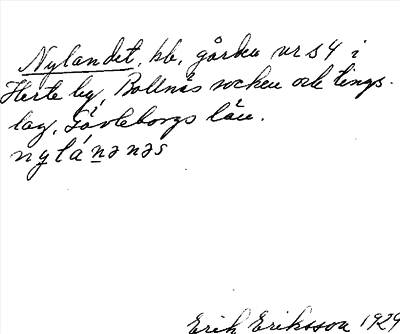 Nylandet, hb, gården nr 5 4 i
Herte by, Bollnäs socken och tings-
lag, Gävleborgs län.
nylánanas
Erik Eriksson 1929